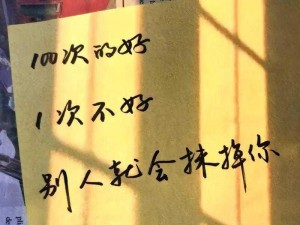 100次的好
1次不好
别人就会抹掉你